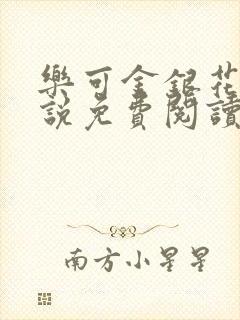 樂可金銀花
說免費閱讀
南方小星星